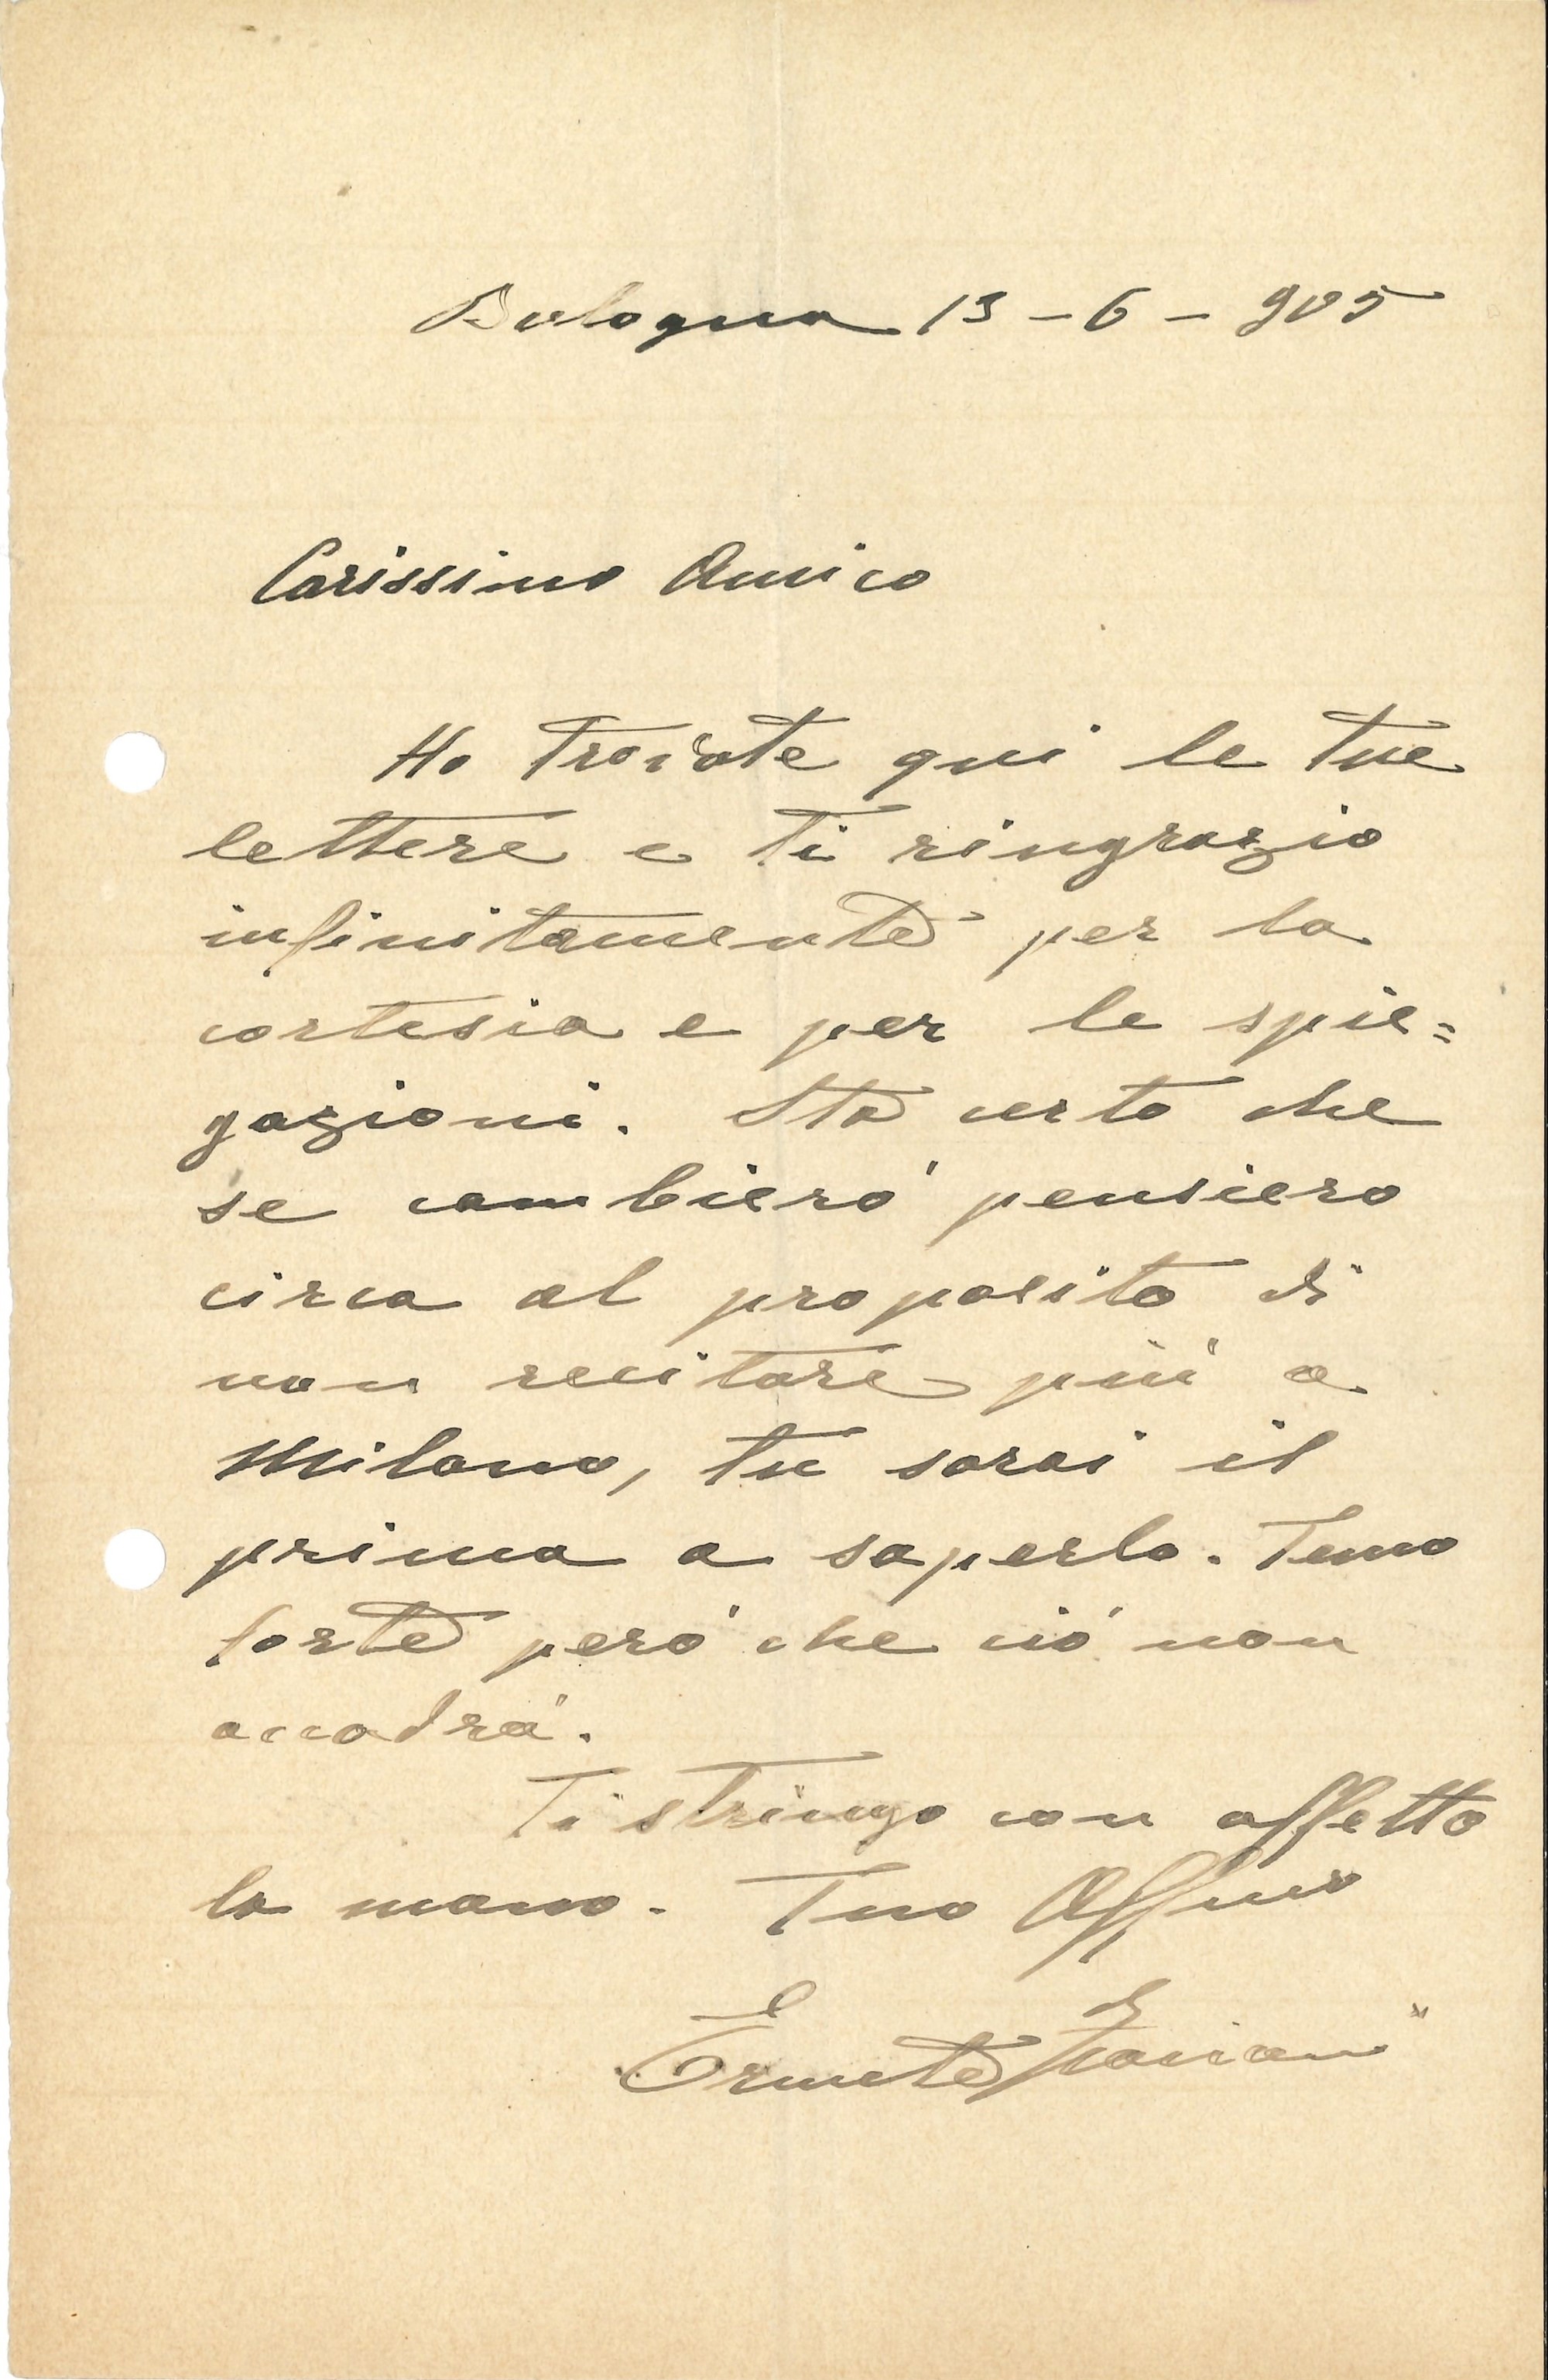 Bologna 13-6-905
Carissimo Amico
Ho trovate qui le tue
lettere e ti ringrazio
infinitamente per la
cortesia e per le spie=
gazioni. Sta certo che
se cambierò pensiero
circa al proposito di
non recitare più a
Milano, tu sarai il
primo a saperlo. Temo
forte però che ciò non
accadrà.
Ti stringo con affetto
la mano. Tuo Affmo
Ermete Zacconi